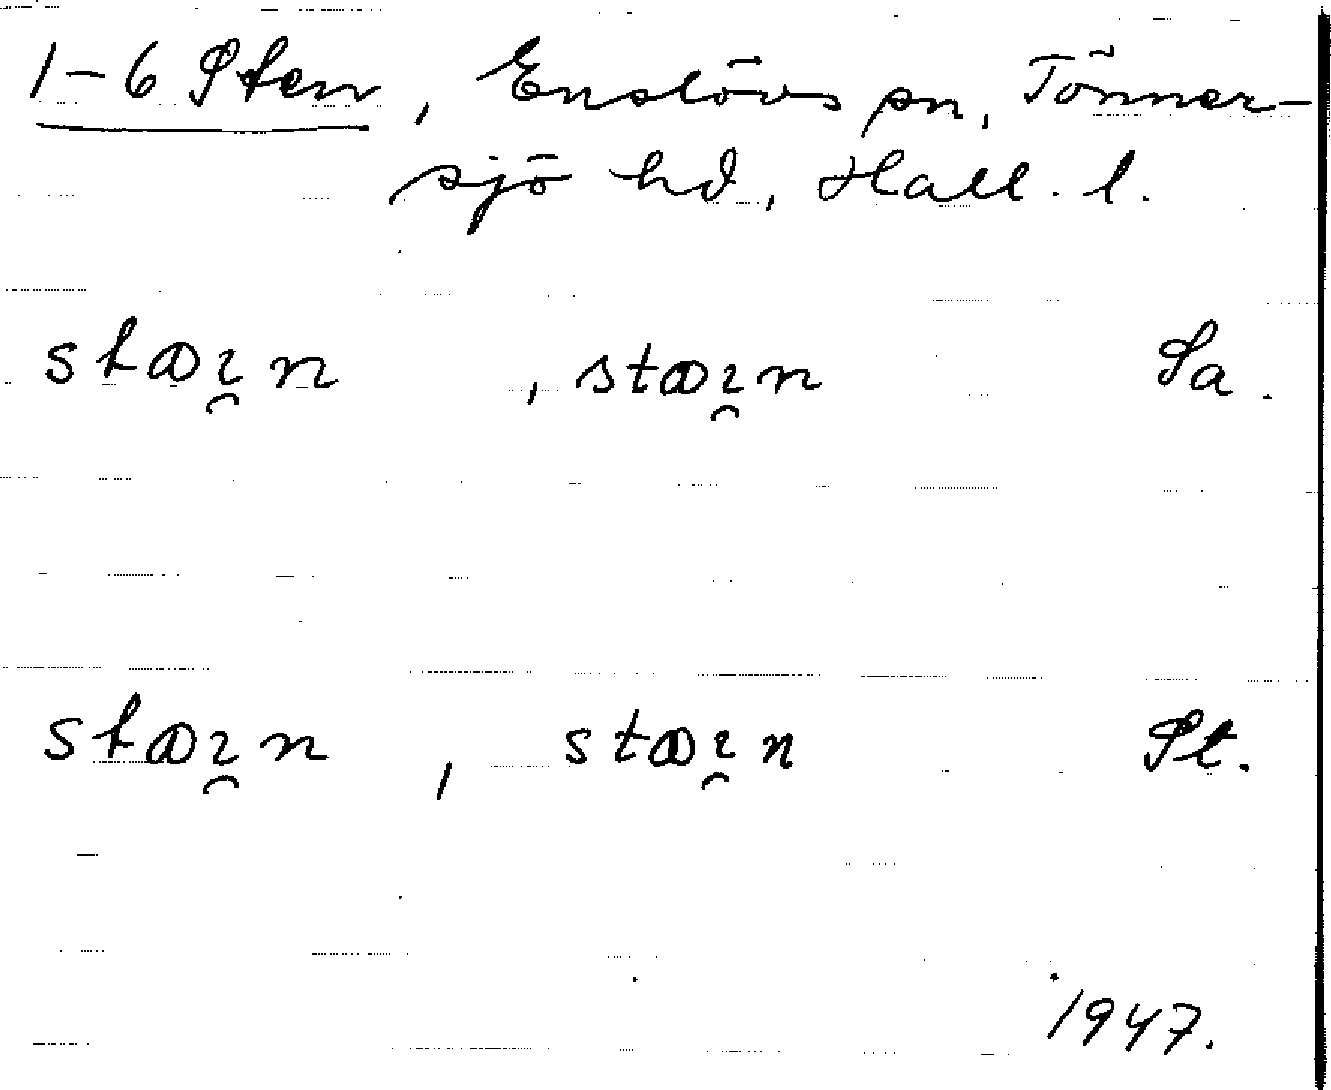 1-6 Sten, Enslövs sn, Tönner-
sjö hd, Hall. l.
stæı̯n , stæı̯n Sa.
stæı̯n , stæı̯n St.
1947.